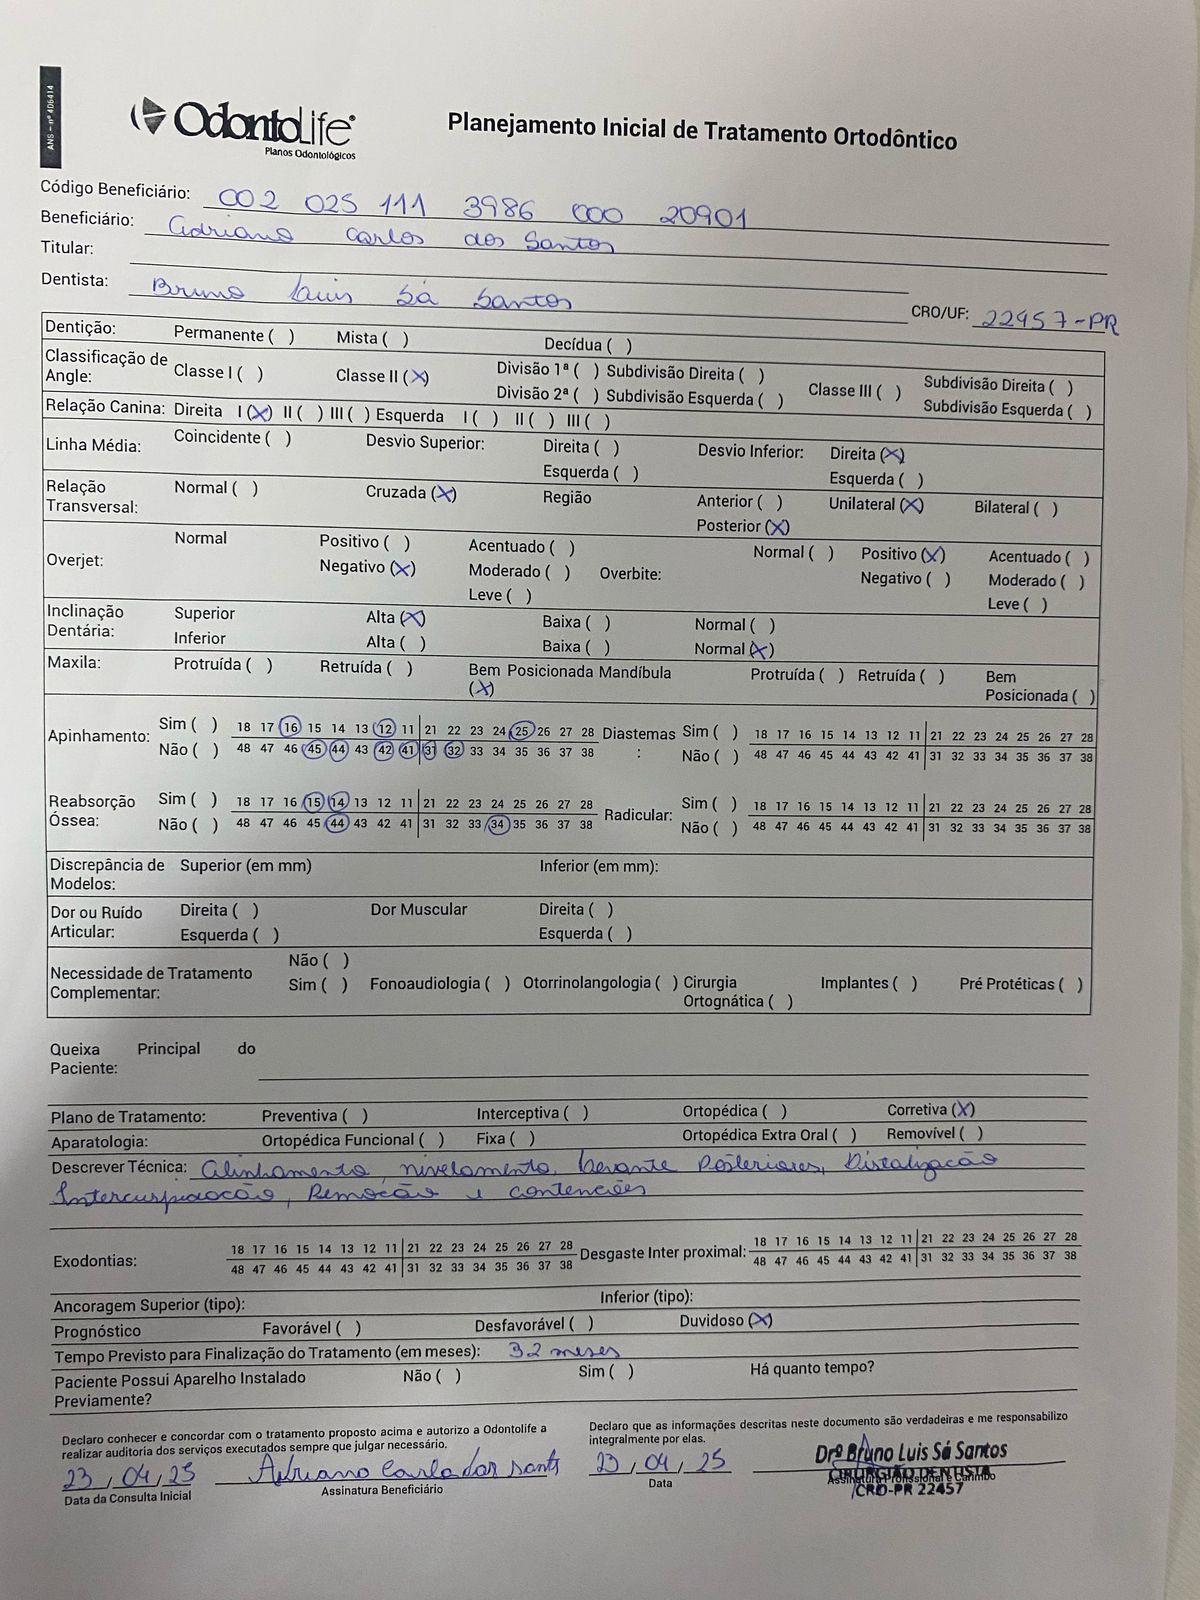 ANS - nº 406414
OdontoLife®
Planos Odontológicos
Planejamento Inicial de Tratamento Ortodôntico
Código Beneficiário: 002 025 111 3986 000 20901
Beneficiário: Adriano Carlos dos Santos
Titular:
Dentista: Bruno Luis Sá Santos CRO/UF: 22457-PR
Dentição: Permanente ( ) Mista ( ) Decídua ( )
Classificação de Angle: Classe I ( ) Classe II (X) Divisão 1ª ( ) Subdivisão Direita ( ) Divisão 2ª ( ) Subdivisão Esquerda ( ) Classe III ( ) Subdivisão Direita ( ) Subdivisão Esquerda ( )
Relação Canina: Direita I (X) II ( ) III ( ) Esquerda I ( ) II ( ) III ( )
Linha Média: Coincidente ( ) Desvio Superior: Direita ( ) Esquerda ( ) Desvio Inferior: Direita (X) Esquerda ( )
Relação Transversal: Normal ( ) Cruzada (X) Região Anterior ( ) Posterior (X) Unilateral (X) Bilateral ( )
Overjet: Normal Positivo ( ) Negativo (X) Acentuado ( ) Moderado ( ) Leve ( ) Overbite: Normal ( ) Positivo (X) Negativo ( ) Acentuado ( ) Moderado ( ) Leve ( )
Inclinação Dentária: Superior Alta (X) Baixa ( ) Normal ( )
Inferior Alta ( ) Baixa ( ) Normal (X)
Maxila: Protruída ( ) Retruída ( ) Bem Posicionada (X) Mandíbula Protruída ( ) Retruída ( ) Bem Posicionada ( )
Apinhamento: Sim ( ) 18 17 16 15 14 13 12 11 21 22 23 24 25 26 27 28 Diastemas: Sim ( ) 18 17 16 15 14 13 12 11 21 22 23 24 25 26 27 28
Não ( ) 48 47 46 45 44 43 42 41 31 32 33 34 35 36 37 38 Não ( ) 48 47 46 45 44 43 42 41 31 32 33 34 35 36 37 38
Reabsorção Óssea: Sim ( ) 18 17 16 15 14 13 12 11 21 22 23 24 25 26 27 28 Radicular: Sim ( ) 18 17 16 15 14 13 12 11 21 22 23 24 25 26 27 28
Não ( ) 48 47 46 45 44 43 42 41 31 32 33 34 35 36 37 38 Não ( ) 48 47 46 45 44 43 42 41 31 32 33 34 35 36 37 38
Discrepância de Modelos: Superior (em mm) Inferior (em mm):
Dor ou Ruído Articular: Direita ( ) Esquerda ( ) Dor Muscular Direita ( ) Esquerda ( )
Necessidade de Tratamento Complementar: Não ( ) Sim ( ) Fonoaudiologia ( ) Otorrinolangologia ( ) Cirurgia Ortognática ( ) Implantes ( ) Pré Protéticas ( )
Queixa Principal do Paciente:
Plano de Tratamento: Preventiva ( ) Interceptiva ( ) Ortopédica ( ) Corretiva (X)
Aparatologia: Ortopédica Funcional ( ) Fixa ( ) Ortopédica Extra Oral ( ) Removível ( )
Descrever Técnica: Alinhamento, nivelamento, Levante Posteriores, Distalização
Intercuspidação, Remoção e contenções
Exodontias: 18 17 16 15 14 13 12 11 21 22 23 24 25 26 27 28 Desgaste Inter proximal: 18 17 16 15 14 13 12 11 21 22 23 24 25 26 27 28
48 47 46 45 44 43 42 41 31 32 33 34 35 36 37 38 48 47 46 45 44 43 42 41 31 32 33 34 35 36 37 38
Ancoragem Superior (tipo): Inferior (tipo):
Prognóstico Favorável ( ) Desfavorável ( ) Duvidoso (X)
Tempo Previsto para Finalização do Tratamento (em meses): 32 meses
Paciente Possui Aparelho Instalado Previamente? Não ( ) Sim ( ) Há quanto tempo?
Declaro conhecer e concordar com o tratamento proposto acima e autorizo a Odontolife a
realizar auditoria dos serviços executados sempre que julgar necessário.
23/04/25 Adriano Carlos dos Santos
Data da Consulta Inicial Assinatura Beneficiário
Declaro que as informações descritas neste documento são verdadeiras e me responsabilizo
integralmente por elas.
23/04/25
Data
Drº Bruno Luis Sá Santos
CIRURGIÃO DENTISTA
Assinatura Profissional e Carimbo
CRO-PR 22457